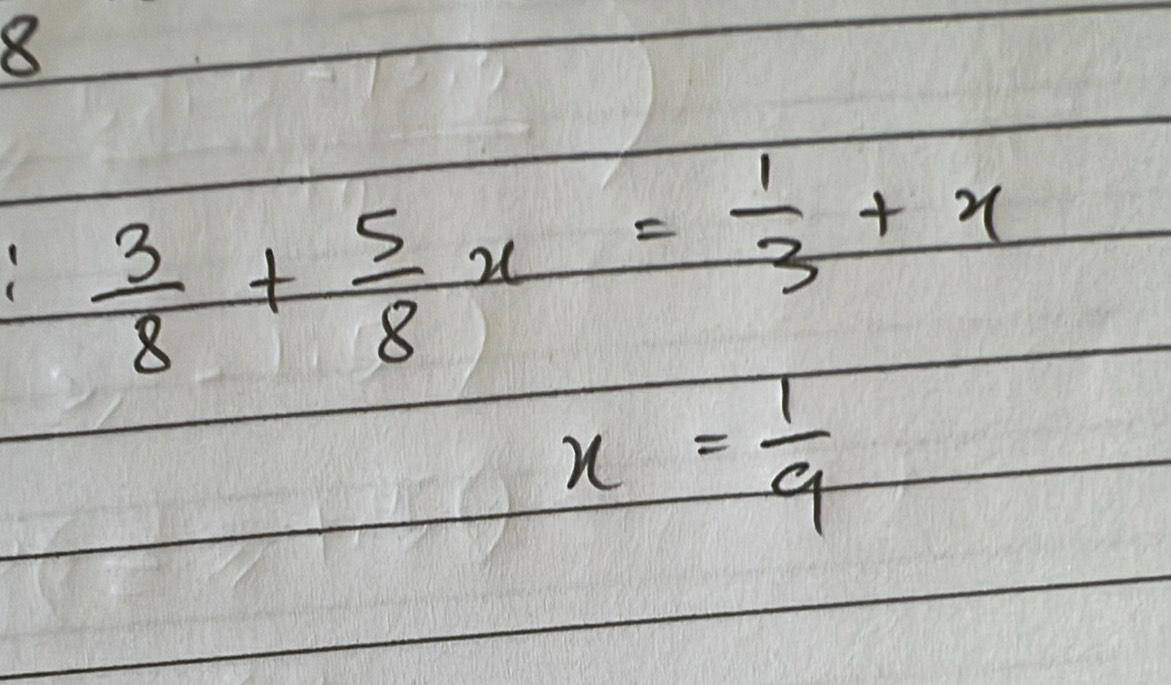 8
: 3/8 + 5/8 x = 1/3 + x
x = 1/9